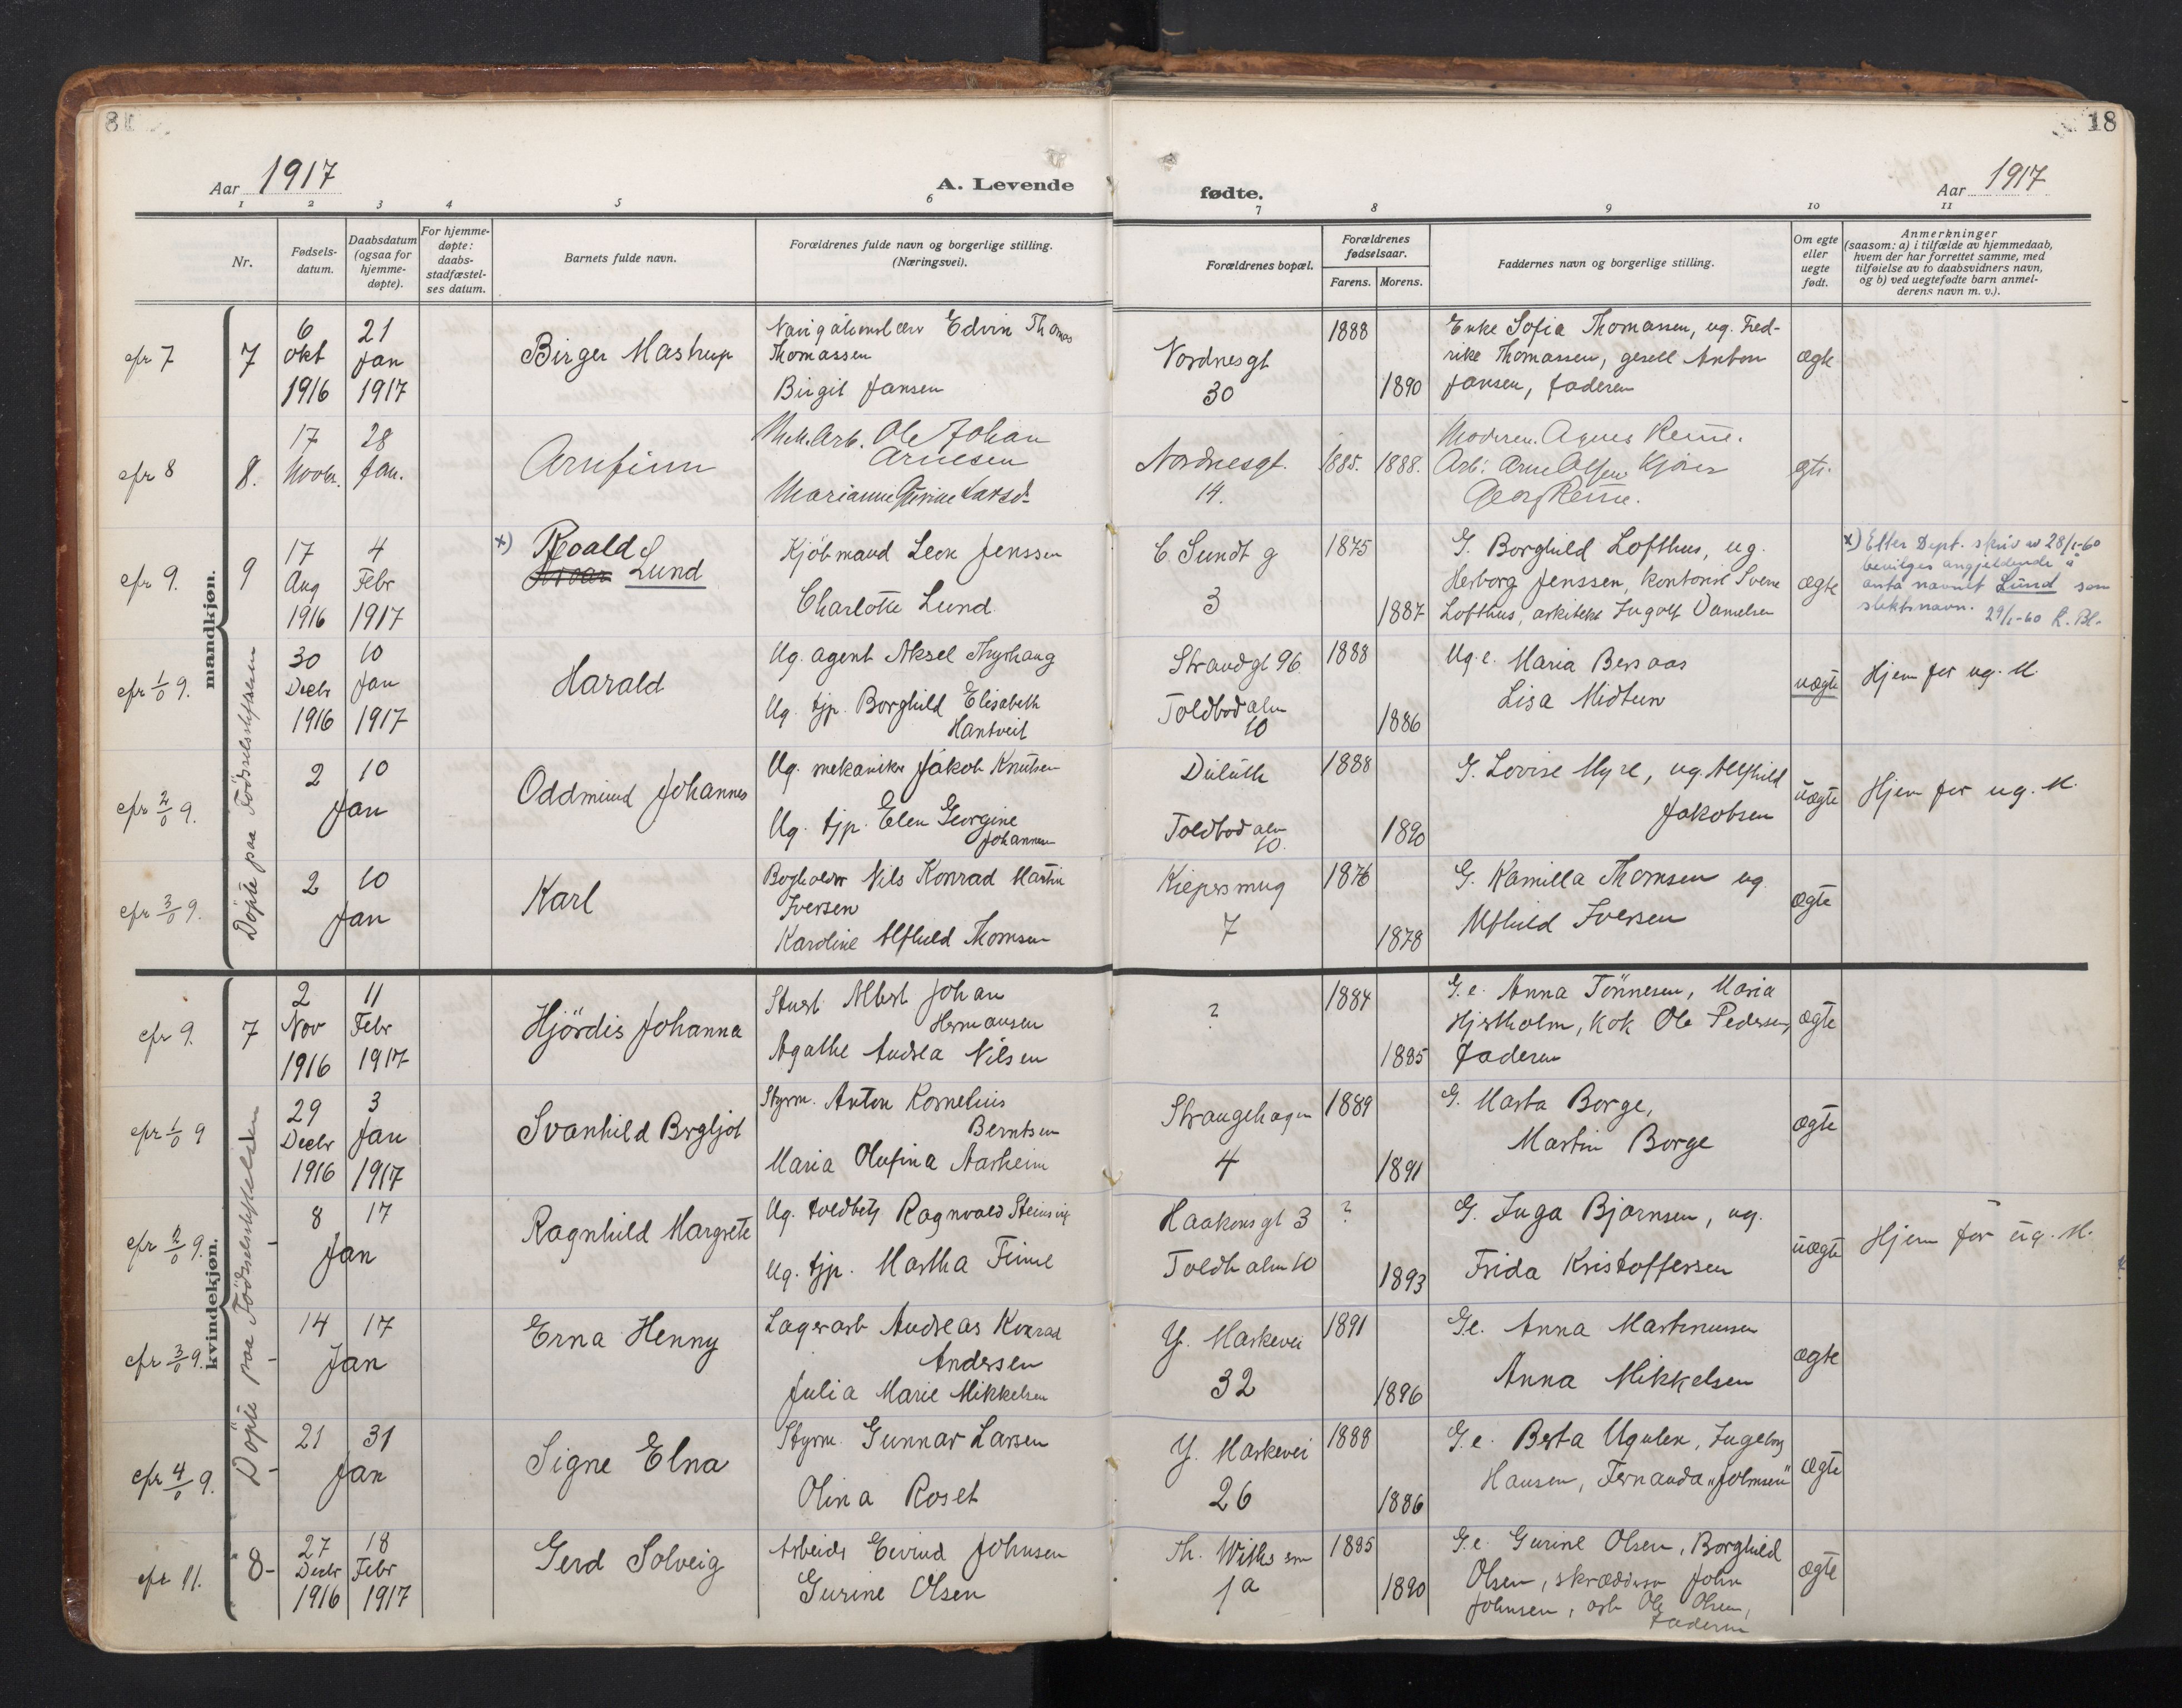 18
Aar 1917
A. Levende
fødte.
Aar 1917
1 2 3 4 5 6 7 8 9 10 11
Nr.
Fødsels-
datum.
Daabsdatum
(ogsaa for
hjemme-
døpte).
For hjemme-
døpte:
daabs-
stadfæstel-
ses datum.
Barnets fulde navn.
Forældrenes fulde navn og borgerlige stilling.
(Næringsvei).
Forældrenes bopæl.
Forældrenes
fødselsaar.
Farens. Morens.
Faddernes navn og borgerlige stilling.
Om egte
eller
uegte
født.
Anmerkninger
(saasom: a) i tilfælde av hjemmedaab,
hvem der har forrettet samme, med
tilføielse av to daabsvidners navn,
og b) ved uegtefødte barn anmel-
derens navn m. v.).
mandkjøn.
Döpte paa Födselsstiftelsen
cfr 7
7
6
Okt
1916
21
Jan
1917
Birger Mastrup
Edvin Thomas
Thomassen
Birgit Jansen
Nordnesgt
30
1888
1890
Enke Sofia Thomassen, ug. Fred-
rike Thomassen, gesell Anton
Jansen, faderen
ægte
cfr 8
8.
17
Novbr.
28
Jan.
Arnfinn
Mek. Arb. Ole Johan
Arnesen
Marianne
Nordnesgt.
14.
1885. 1888.
Moderen. Agnes
Arb. Arne
Georg
cfr 9.
9
17
Aug
1916
4
Febr
1917
x) Roald
Lund
Kjöbmand Leon Jenssen
Charlotte Lund
C. Sundt g
3
1875
1887
G. Borghild Lofthus, ug.
Herborg Jenssen, kontorist Sverre
Lofthus, arkitekt Ingolf Danielsen
ægte
x) Etter Dept. skriv av 28/1-60
bevilges angjeldende å
anta navnet Lund som
slektsnavn. 29/1-60 R. Bl.
cfr 1/0 9.
30
Decbr
1916
10
Jan
1917
Harald
Ug. agent Aksel
Ug. tjp. Borghild Elisabeth
Hantveit
Strandgt 96
Toldbodalm
10
1888
1886
Ug. e. Maria Bersaas
Lisa Midtun
uægte
Hjem for ug. M.
cfr 2/0 9.
2
10
Jan
Oddmund Johannes
Ug. mekaniker Jakob Knutsen
Ug. tjp. Elen Georgine
Johannsen
Duluth
Toldbodalm
10.
1888
1890
G. Lovise Myre, ug. Alfhild
Jakobsen
uægte
Hjem for ug. M.
cfr 3/0 9.
2
10
Jan
Karl
Bogholder Nils Konrad Martin
Iversen
Karoline Alfhild Thomsen
7
1876
1878
G. Kamilla Thomsen ug.
Alfhild Iversen
ægte
kvindekjøn.
Döpte paa Födselsstiftelsen
cfr 9.
7
2
Nov
1916
11
Febr
1917
Hjördis Johanna
Stuert Albert Johan
Hermansen
Agathe Andrea Nilsen
?
1884
1885
G. e. Anna Tönnesen, Maria
Hjertholm, kok Ole Pedersen,
faderen
ægte
cfr 1/0 9
29
Decbr
1916
3
Jan
1917
Svanhild Brgljot
Styrm. Anton Kornelius
Berntsen
Maria Olufina Aarheim
Strangehagen
4
1889
1891
G. Marta Borge,
Martin Borge
ægte
cfr 2/0 9.
8
17
Jan
Ragnhild Margrete
Ug. toldbetj Ragnvald Steinsvig
Ug. tjp. Martha Finne
Haakonsgt 3
Toldb alm 10
?
1893
G. Inga Bjørnsen, ug.
Frida Kristoffersen
uægte
Hjem for ug. M.
cfr 3/0 9.
14
17
Jan
Erna Henny
Lagerarb Andreas Konrad
Andersen
Julia Marie Mikkelsen
Y. Markevei
32
1891
1896
Ge. Anna Martinussen
Anna Mikkelsen
ægte
cfr 4/0 9.
21
31
Jan
Signe Elna
Styrm. Gunnar Larsen
Olina Roset
Y. Markevei
26
1888
1886
G. e. Berta Ugulen, Ingeborg
Hansen, Fernanda "Johnsen"
ægte
cfr 11.
8
27
Decbr
1916
18
Febr
1917
Gerd Solveig
Arbeider Eivind Johnsen
Gurine Olsen
Th. Withs sm
1a
1885
1890
G. e. Gurine Olsen, Borghild
Olsen, skrædder John
Johnsen, arb Ole Olsen,
faderen
ægte